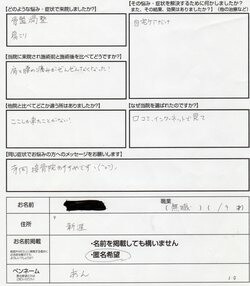 【どのような悩み・症状で来院しましたか？】
骨盤調整
肩こり
【その悩み・症状を解決するために何かしましたか？
また、その結果、効果はありましたか？(他の治療など)】
自宅ケアだけ
【当院に来院され施術前と施術後を比べてどうですか？】
肩と腰の痛みがぜんぜんなくなった！
【他院と比べてどこか違う所はありましたか？】
ここしか来たことがない
【なぜ当院を選ばれたのですか？】
口コミ、インターネットで見て
【同じ症状でお悩みの方へのメッセージをお願いします】
接骨院おすすめです。
お名前
職業
(無職)
住所
新道
お名前掲載
・名前を掲載しても構いません
・匿名希望
ペンネーム
あん